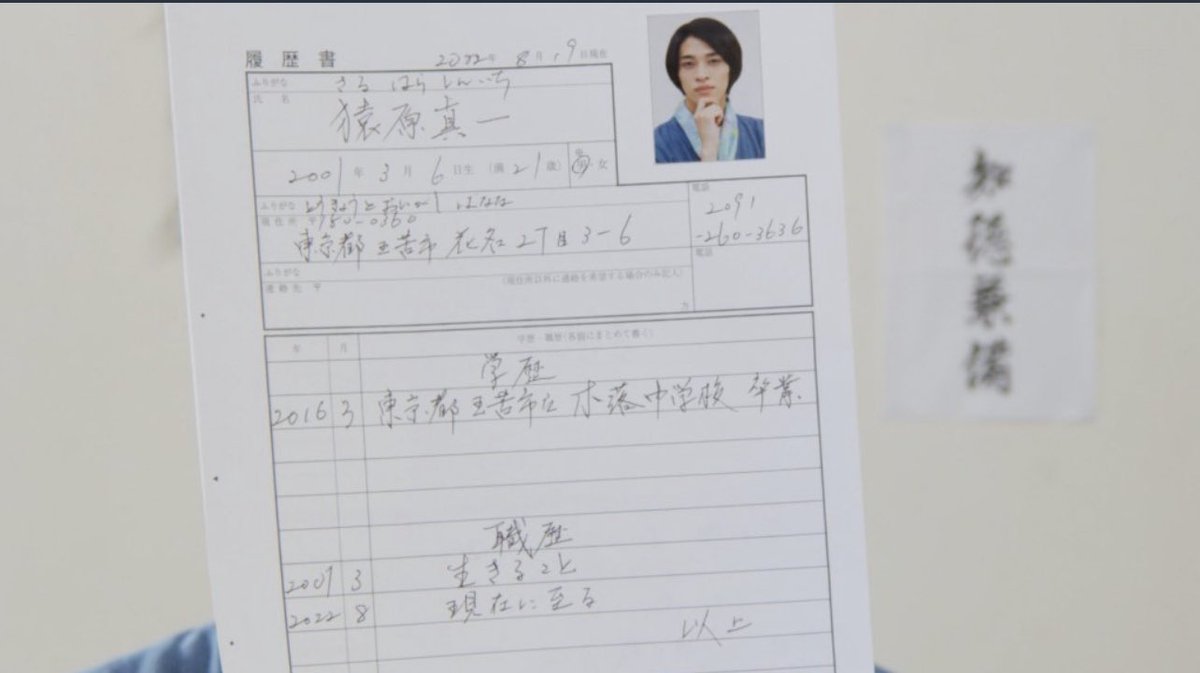 履歴書 2022年 8月 19日現在
ふりがな さるはら しんいち
氏名 猿原真一
2001年 3月 6日生(満 21歳) 男・女
ふりがな とうきょうとおいくるし はなな
現住所 〒150-0360
東京都王苦市花名2丁目3-6
電話
2091
-260-3636
ふりがな
連絡先 〒 (現住所以外に連絡を希望する場合のみ記入)
方
電話
年 月 学歴・職歴(各個にまとめて書く)
学歴
2016 3 東京都王苦市立 木落中学校 卒業
職歴
2001 3 生きること
2022 8 現在に至る
以上
知徳兼備